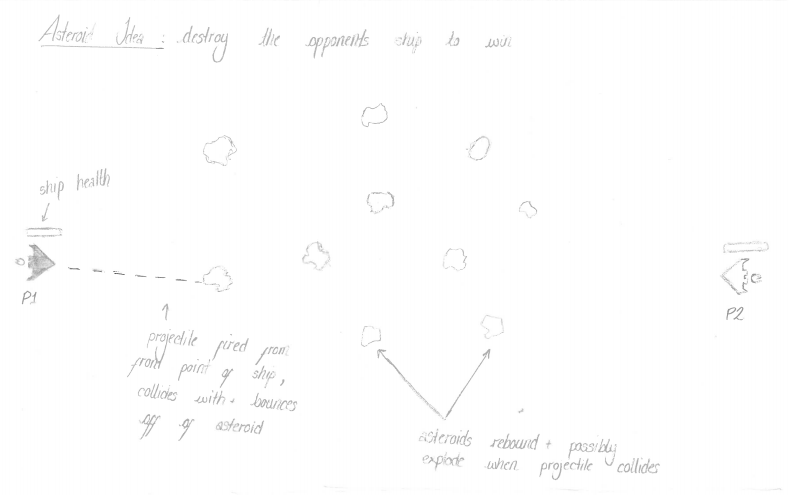 Asteroid Idea : destroy the opponents ship to win
ship health
P1
P2
projectile fired from
front point of ship,
collides with + bounces
off of asteroid
asteroids rebound + possibly
explode when projectile collides